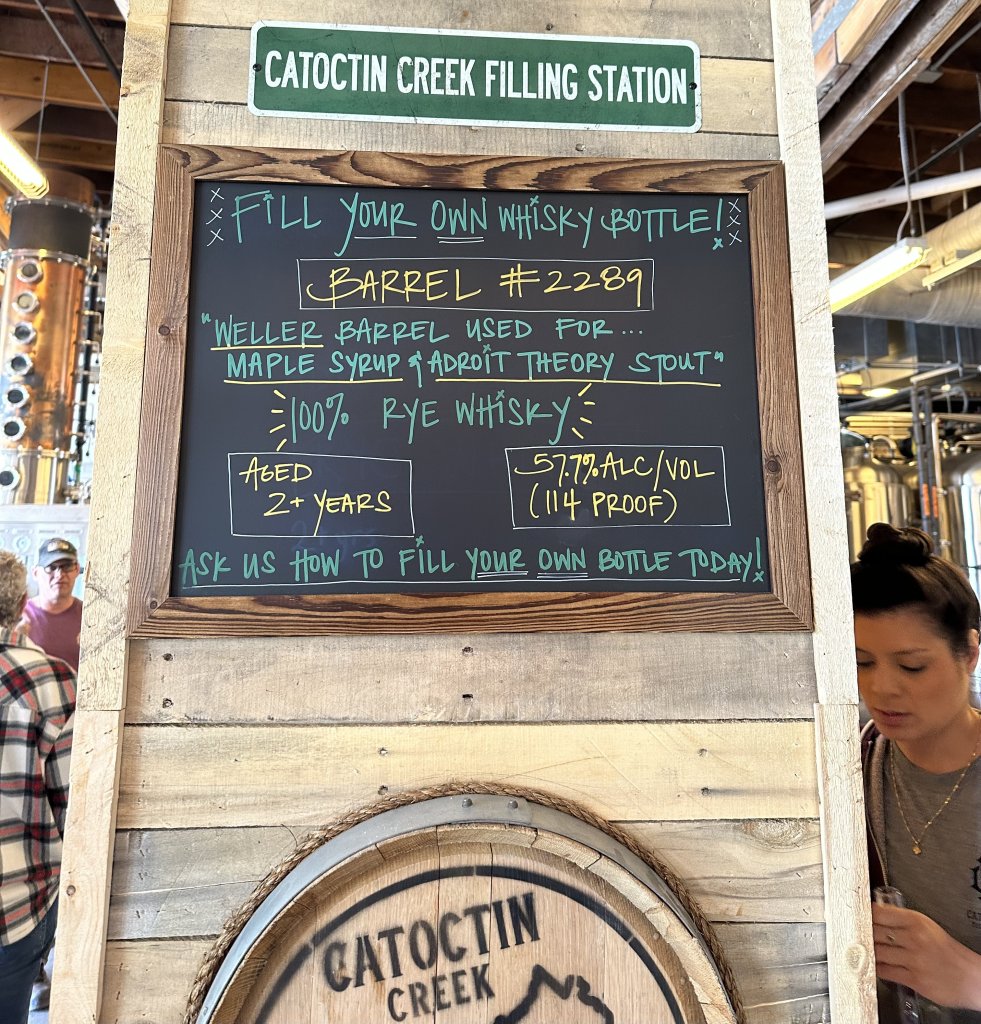 CATOCTIN CREEK FILLING STATION
FiLL YOUR OWN WHiSKY BOTTLE!
BARREL #2289
"WELLER BARREL USED FOR...
MAPLE SYRUP & ADROiT THEORY STOUT"
100% RYE WHiSKY
AGED
2+ YEARS
57.7% ALC/VOL
(114 PROOF)
ASK US HOW TO FiLL YOUR OWN BOTTLE TODAY!
CATOCTIN
CREEK